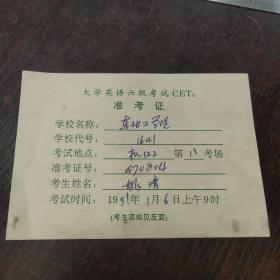 大学英语六级考试CET₆
准考证
学校名称：东北工学院
学校代号：1641
考试地点：机122 第 八 考场
准考证号：470804
考生姓名：姚清
考试时间：1991年1月6日上午9时
(考生须知见反面)